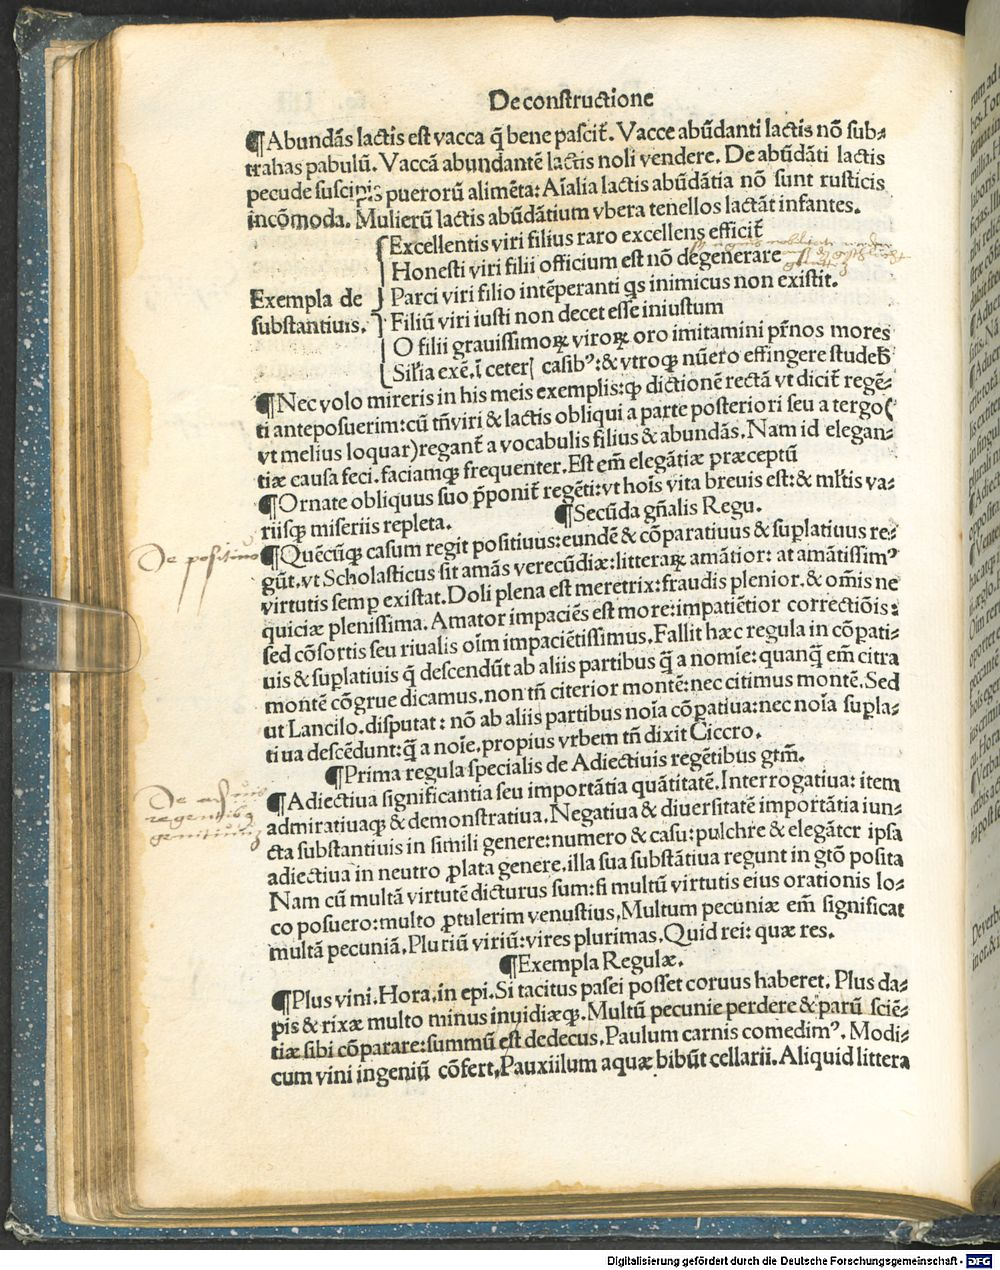 De constructione
¶Abundãs lactis est vacca q̃ bene pascit̃. Vacce abũdanti lactis nõ sub⸗
trahas pabulũ. Vaccã abundantẽ lactis noli vendere. De abũdãti lactis
pecude suscipis puerorũ alimẽta: Aĩalia lactis abũdãtia nõ sunt rusticis
incõmoda. Mulierũ lactis abũdãtium vbera tenellos lactãt infantes.
Exempla de
substantiuis.
Excellentis viri filius raro excellens efficit̃
Honesti viri filii officium est nõ degenerare
Parci viri filio intẽperanti q̃s inimicus non existit.
Filiũ viri iusti non decet esse iniustum
O filii grauissimoꝝ viroꝝ oro imitamini pr̃nos mores
Sil̃ia exẽ. ĩ ceter[ casibꝰ: & vtroq̃ nũero effingere studeb̃
¶Nec volo mireris in his meis exemplis: ꝙ dictionẽ rectã vt dicit̃ regẽ⸗
ti anteposuerim: cũ tñ viri & lactis obliqui a parte posteriori seu a tergo (
vt melius loquar) regant̃ a vocabulis filius & abundãs. Nam id elegan⸗
tiæ causa feci. faciamꝙ frequenter. Est em̃ elegãtiæ præceptũ
¶Ornate obliquus suo p̃ponit̃ regẽti: vt hoĩs vita breuis est: & ml̃tis va⸗
riisꝙ miseriis repleta.
¶Secũda gñalis Regu.
De positiuo
¶Quẽcũꝙ casum regit positiuus: eundẽ & cõparatiuus & suplatiuus re⸗
gũt. vt Scholasticus sit amãs verecũdiæ: litteraꝝ amãtior: at amãtissimꝰ
virtutis semꝑ existat. Doli plena est meretrix: fraudis plenior. & om̃is ne
quiciæ plenissima. Amator impaciẽs est more: impatiẽtior correctiõis:
sed cõsortis seu riualis oĩm impaciẽtissimus. Fallit hæc regula in cõpati⸗
uis & suplatiuis q̃ descendũt ab aliis partibus q̃ a nomĩe: quanq̃ em̃ citra
montẽ cõgrue dicamus. non tñ citerior montẽ: nec citimus montẽ. Sed
ut Lancilo. disputat: nõ ab aliis partibus noĩa cõpatiua: nec noĩa supla⸗
tiua descẽdunt: q̃ a noĩe. propius vrbem tñ dixit Cicero.
¶Prima regula specialis de Adiectiuis regẽtibus gtm̃.
De
regentibꝫ
genitiuũ
¶Adiectiua significantia seu importãtia quãtitatẽ. Interrogatiua: item
admiratiuaꝙ & demonstratiua. Negatiua & diuersitatẽ importãtia iun⸗
cta substantiuis in simili genere: numero & casu: pulchre & elegãter ipsa
adiectiua in neutro ꝓlata genere. illa sua substãtiua regunt in gtõ posita
Nam cũ multã virtutẽ dicturus sum: si multũ virtutis eius orationis lo⸗
co posuero: multo ꝓtulerim venustius. Multum pecuniæ em̃ significat
multã pecuniã. Pluriũ viriũ: vires plurimas. Quid rei: quæ res.
¶Exempla Regulæ.
¶Plus vini. Hora. in epi. Si tacitus pasci posset coruus haberet. Plus da⸗
pis & rixæ multo minus inuidiæꝙ. Multũ pecunie perdere & parũ sciẽ⸗
tiæ sibi cõparare: summũ est dedecus. Paulum carnis comedimꝰ. Modi⸗
cum vini ingeniũ cõfert. Pauxiilum aquæ bibũt cellarii. Aliquid littera
Digitalisierung gefördert durch die Deutsche Forschungsgemeinschaft - DFG